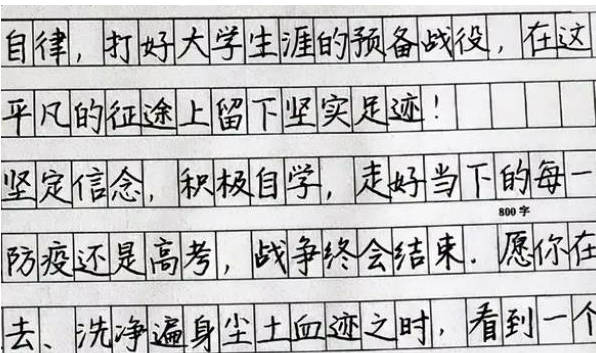 自律，打好大学生涯的预备战役，在这
平凡的征途上留下坚实足迹！
坚定信念，积极自学，走好当下的每一
800字
防疫还是高考，战争终会结束．愿你在
去、洗净遍身尘土血迹之时，看到一个